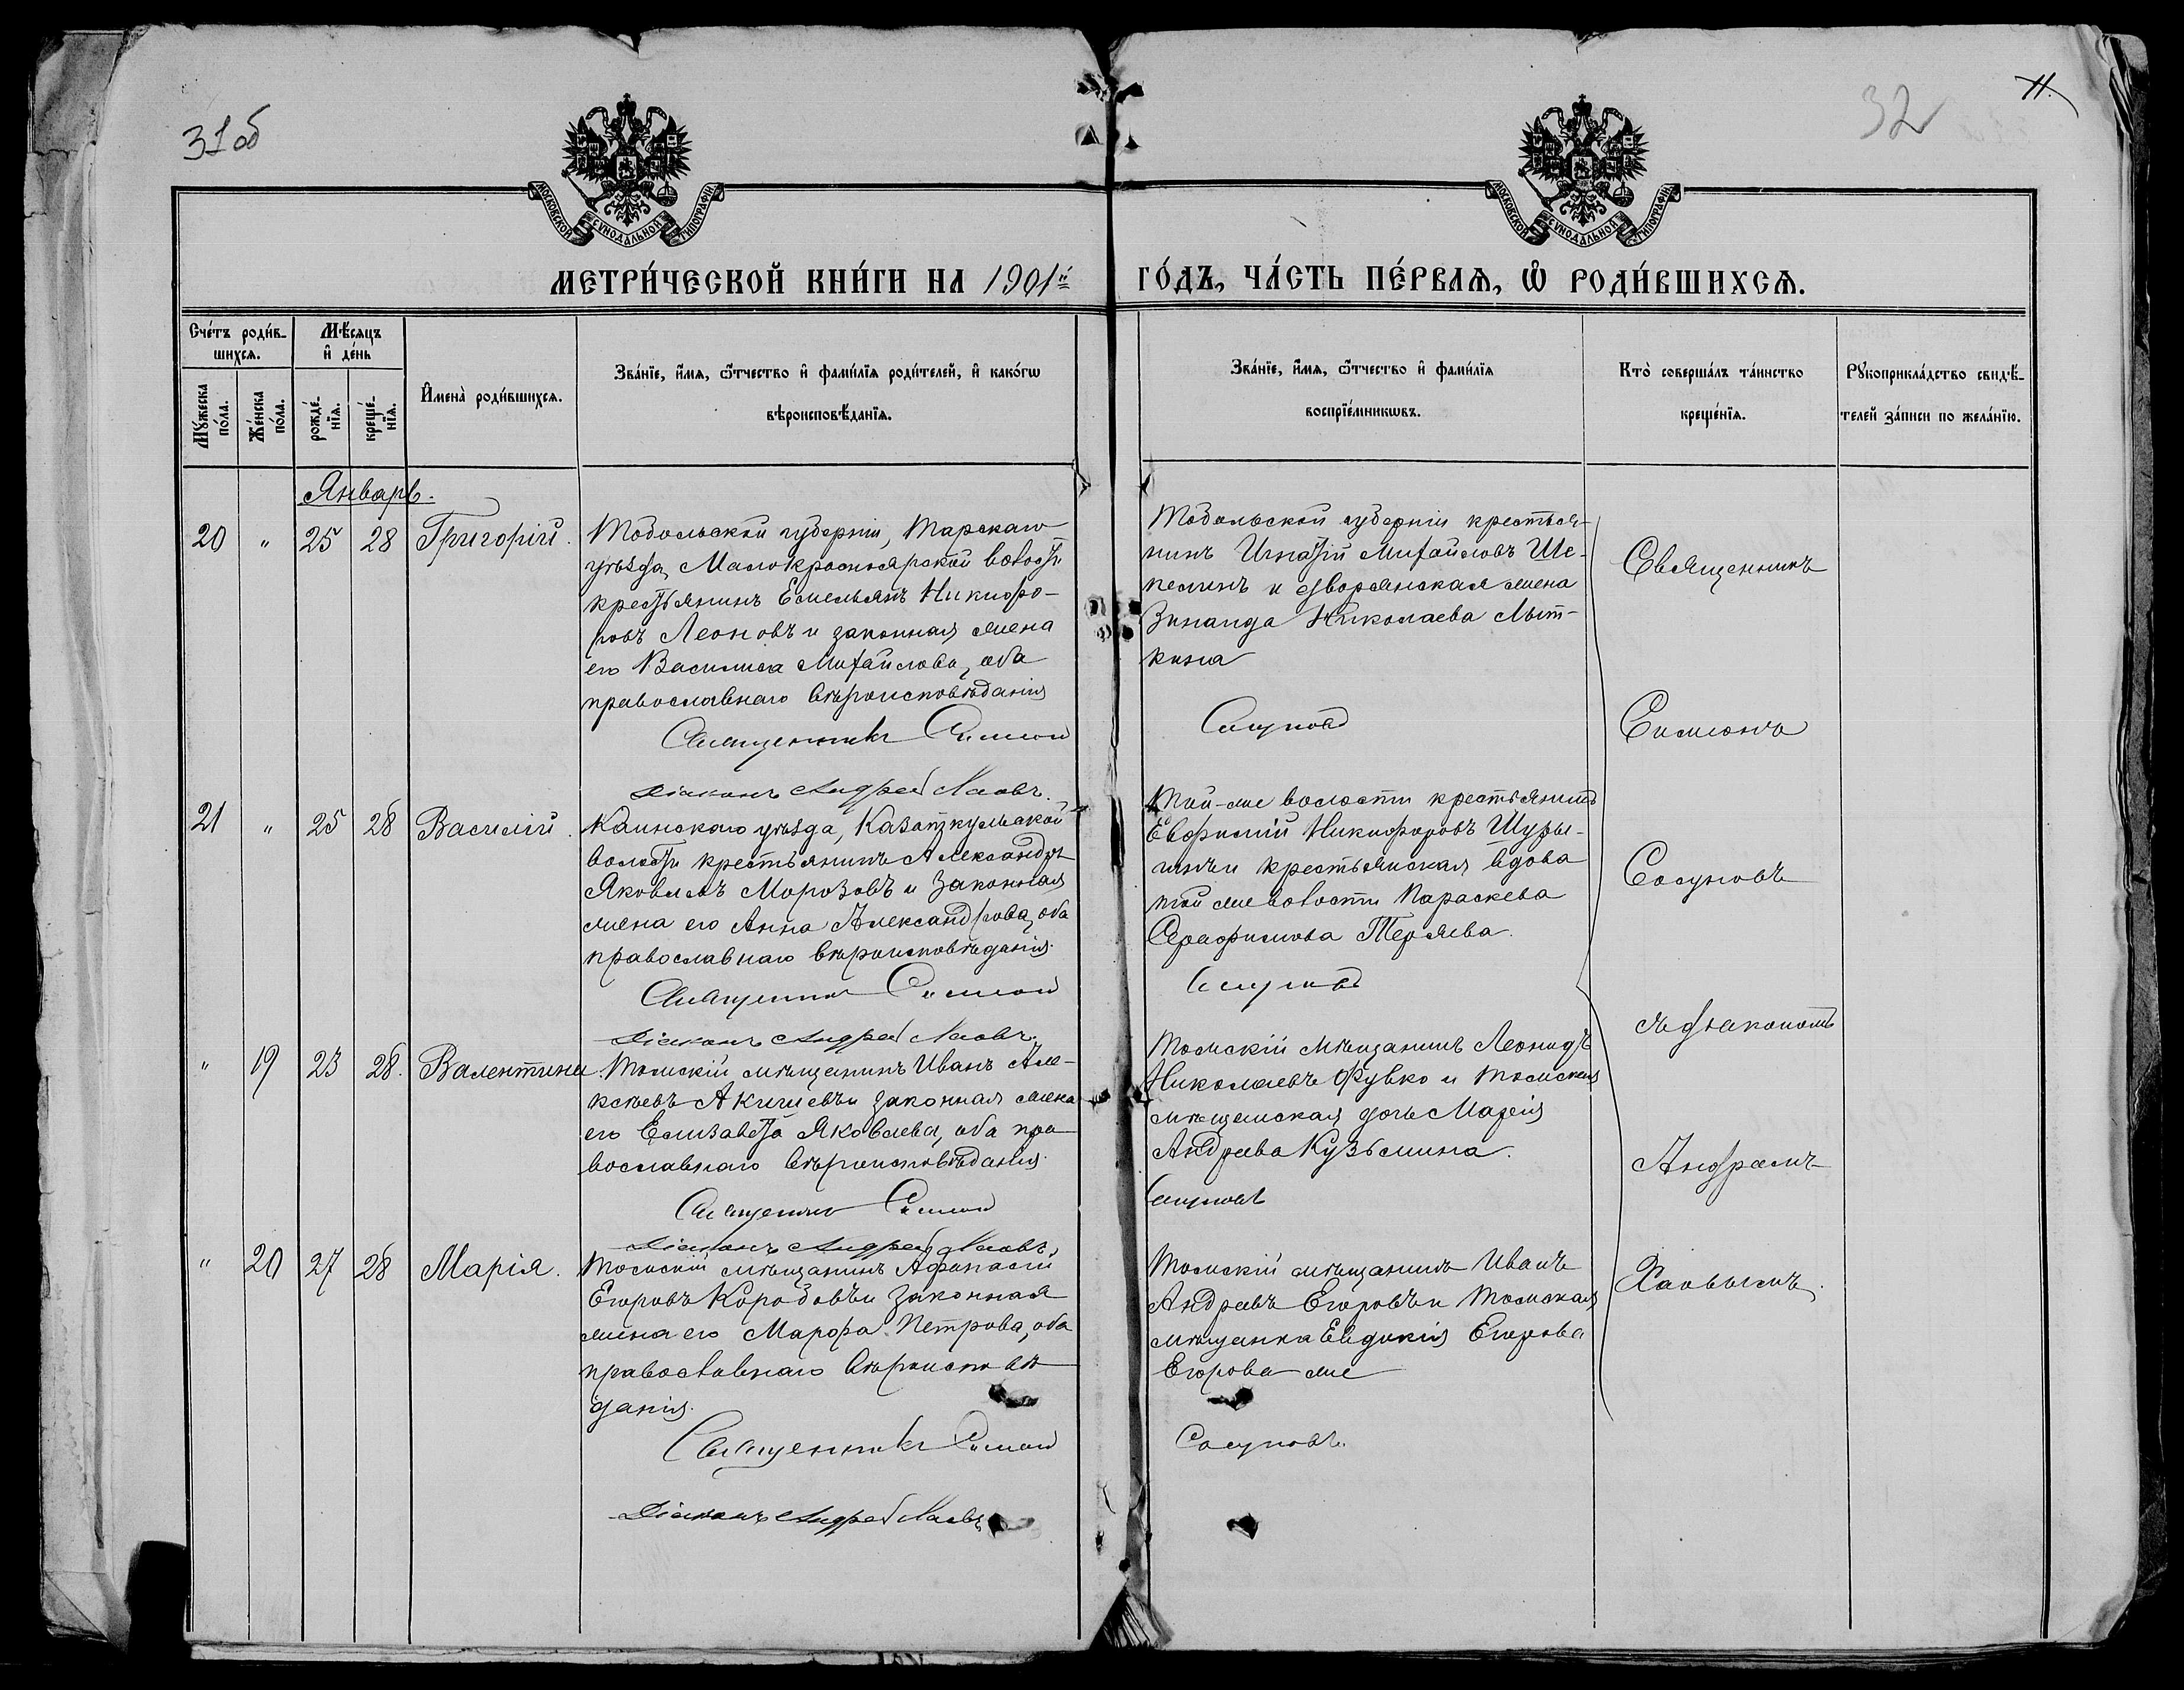 31об
32
11.
МОСКОВСКОЙ СУНОДАЛЬНОЙ ТИПОГРАФІИ
МОСКОВСКОЙ СУНОДАЛЬНОЙ ТИПОГРАФІИ
МЕТРИ́ЧЕСКОЙ КНИ́ГИ НА 1901й
ГО́ДЪ, ЧА́СТЬ ПЕ́РВАѦ, Ѽ РОДИ́ВШИХСѦ.
Сче́тъ роди́в-
шихсѧ.
Мѣ́сѧцъ
и҆ де́нь
Мꙋ́жеска
по́ла.
Же́нска
по́ла.
рожде́-
нїѧ.
креще́-
нїѧ.
И҆мена̀ роди́вшихсѧ.
Зва́нїе, и҆́мѧ, ѻ҆́тчество и҆ фами́лїѧ роди́телей, и҆ како́гѡ
вѣроисповѣ́данїѧ.
Зва́нїе, и҆́мѧ, ѻ҆́тчество и҆ фами́лїѧ
воспрїе́мникѡвъ.
Кто̀ соверша́лъ та́инство
креще́нїѧ.
Рꙋкоприкла́дство свидѣ́-
телей за́писи по жела́нїю.
Январь.
20 " 25 28 Григорій.
Тобольской губерніи, Тарскаго
уѣзда, Малокрасноярской волости
крестьянинъ Емельянъ Никифо-
ровъ Леоновъ и законная жена
его Василиса Михайлова, оба
православнаго вѣроисповѣданія
Священникъ Симеон
Діаконъ Андрей
Тобольской губерніи крестья-
нинъ Игнатій Михайловъ Ше-
пелинъ и дворянская жена
Зинаида Николаева Лыт-
кина
Сосунов
21 " 25 28 Василій.
Каинскаго уѣзда, Казаткульской
волости крестьянинъ Александръ
Яковлевъ Морозовъ и законная
жена его Анна Александрова, оба
православнаго вѣроисповѣданія.
Священник Симеон
Діаконъ Андрей
Той-же волости крестьянинъ
Евфимій Никифоровъ
и крестьянская вдова
той же волости Параскева
Серафимова Теряева.
Сосунов
" 19 23 28. Валентина.
Томскій мѣщанинъ Иванъ Але-
ксѣевъ Акишевъ и законная жена
его Елизавета Яковлева, оба пра-
вославнаго вѣроисповѣданія.
Священник Симеон
Діаконъ Андрей
Томскій мѣщанинъ Леонидъ
Николаевъ и томская
мѣщанская дочь Марія
Андреева Кузьмина.
Сосуновъ
" 20 27 28 Марія.
Томскій мѣщанинъ Афанасій
Егоровъ Коробовъ и законная
жена его Марфа Петрова, оба
православнаго вѣроисповѣ-
данія.
Священникъ Симеон
Діаконъ Андрей
Томскій мѣщанинъ Иванъ
Андреевъ Егоровъ и томская
мѣщанка Евдокія Егорова
Егорова же
Сосуновъ.
Священникъ
Симеонъ
Сосуновъ
съ діакономъ
Андреемъ